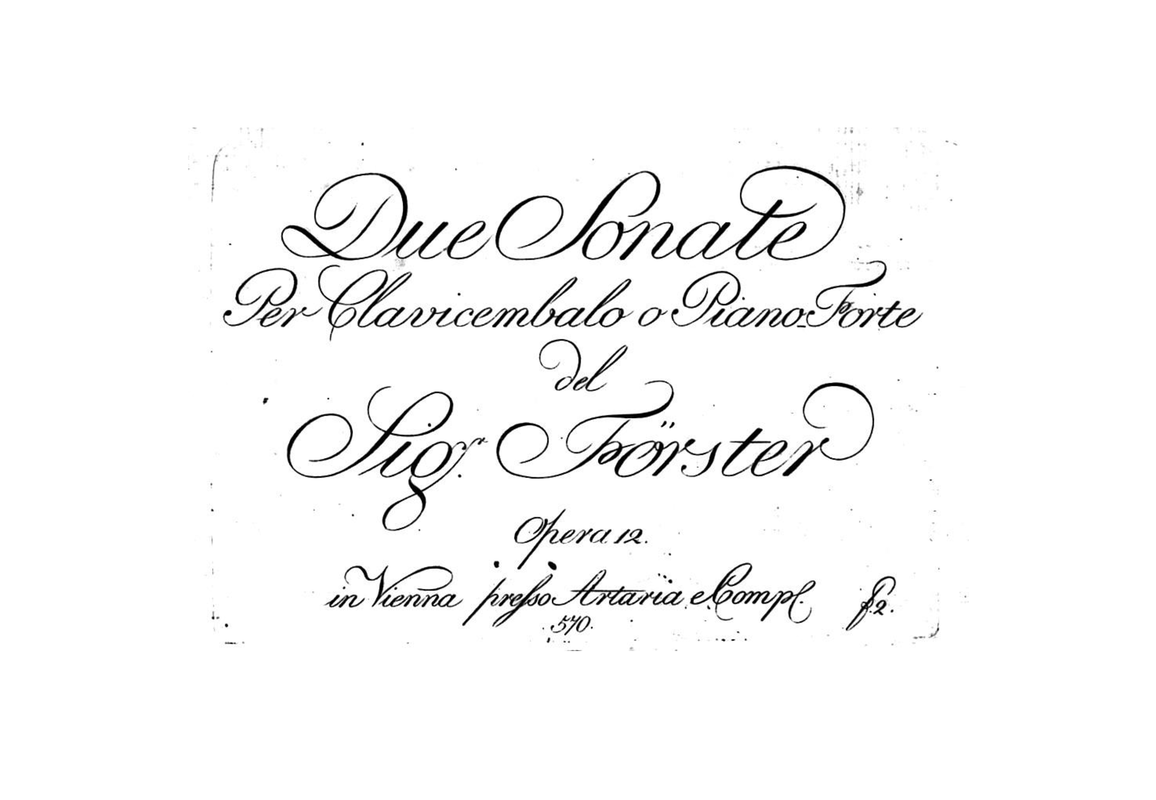 Due Sonate
Per Clavicembalo o Piano-Forte
del
Sigr. Förster
Opera 12.
in Vienna presso Artaria e Comp. f.2.
570.